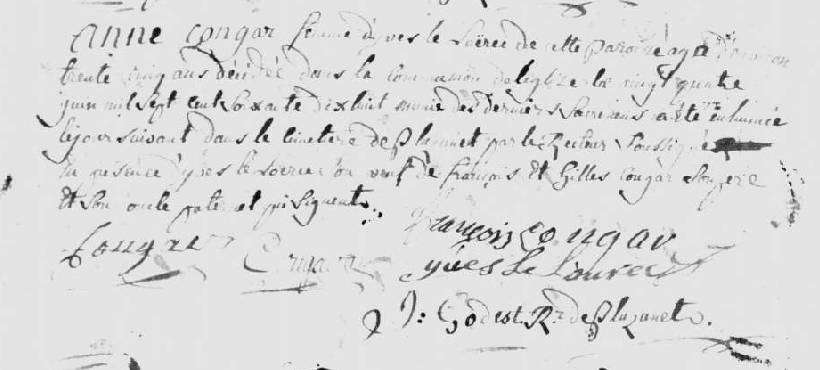 Anne Congar femme d'yves le soëree de cette paroisse agée d'environ
trente cinq ans décédée dans la Communion de leglize le vingt quatre
juin mil sept cent soixante dixhuit munie des derniers sacremens a été inhumée
le jour suivant dans le cimetiere de plusunet par le Recteur soussigné
en presence d'yves le soerree son veuf de françois et Gilles Congar son pere
et son oncle paternel qui signent
Congar françois congar
yves le
J: Godest Rr de plusunet.